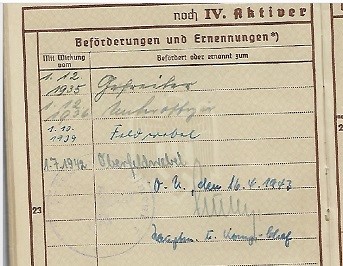 noch IV. Aktiver
Beförderungen und Ernennungen*)
Mit Wirkung vom
Befördert oder ernannt zum
1.12
1935 Gefreiter
1.12
1936 Unteroffizier
1.10.
1939 Feldwebel
1.7.1942 Oberfeldwebel
O. U., den 16.4.1943
23
Hauptm. u. Komp.-Chef